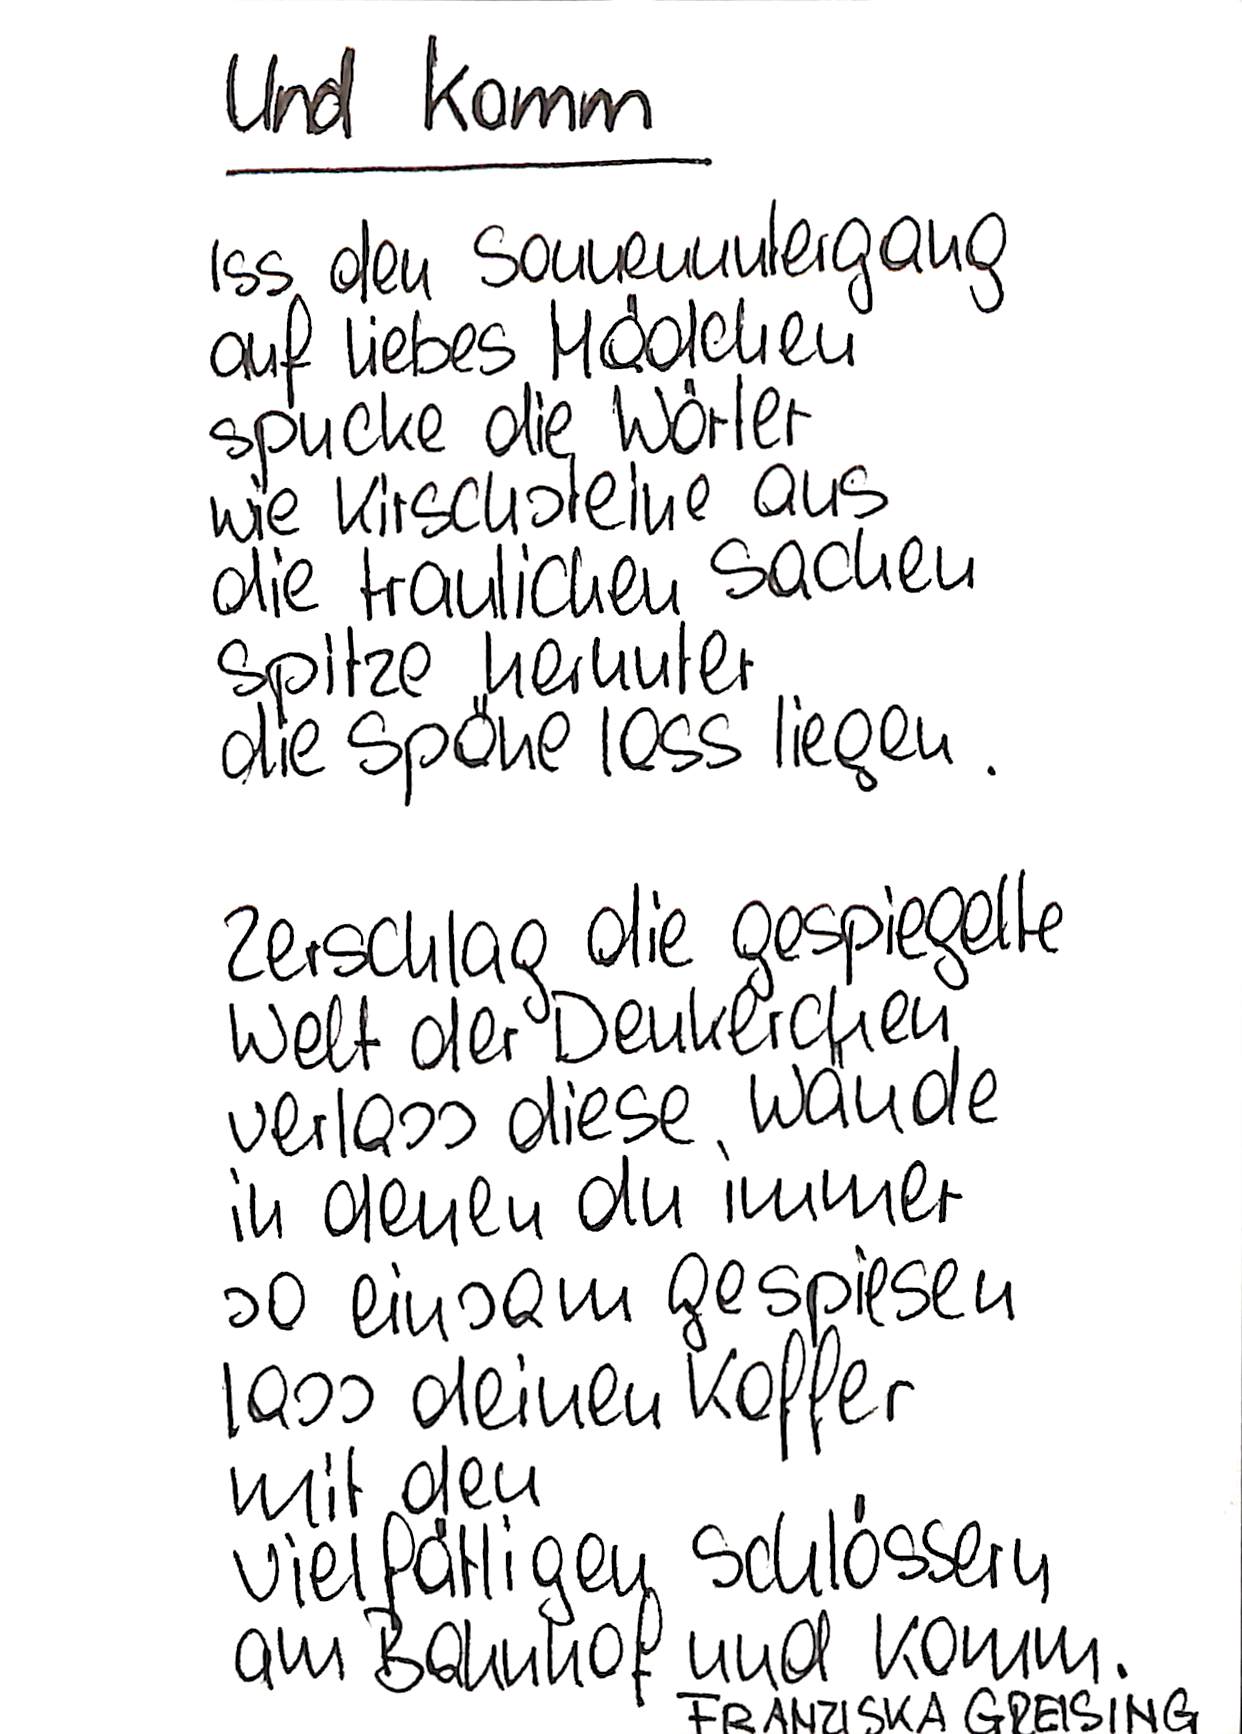 Und komm
Iss den Sonnenuntergang
auf liebes Mädchen
spucke die Wörter
wie Kirschsteine aus
die traulichen Sachen
spitze herunter
die Späne lass liegen.
Zerschlag die gespiegelte
Welt der Denkerchen
verlass diese Wände
in denen du immer
so einsam gespiesen
lass deinen Koffer
mit den
vielfältigen Schlössern
am Bahnhof und komm.
FRANZISKA GREISING